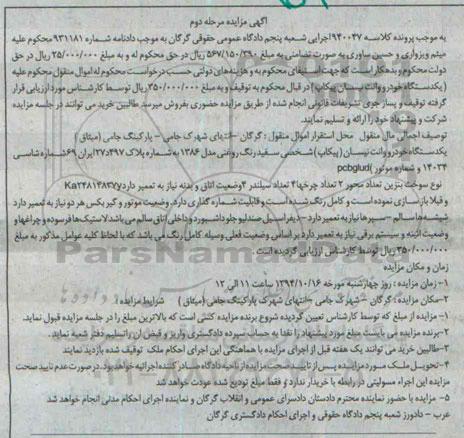 آگهی مزایده مرحله دوم
به موجب پرونده کلاسه ۹۴۰۰۴۷ اجرایی شعبه پنجم دادگاه عمومی حقوقی گرگان به موجب دادنامه شماره ۹۳۱۱۸۱ محکوم علیه
میثم ویزواری و حسین ساوری به صورت تضامنی به مبلغ ۵۶۷/۱۵۰/۳۹۰ ریال در حق محکوم له و به مبلغ ۲۵/۰۰۰/۰۰۰ ریال در حق
دولت محکوم و بدهکار است که جهت استیفای محکوم به و هزینه های دولتی حسب درخواست محکوم له اموال منقول محکوم علیه
(یکدستگاه خودرو وانت نیسان (پیکاپ) در قبال محکوم به توقیف و به مبلغ ۳۵۰/۰۰۰/۰۰۰ ریال توسط کارشناس مورد ارزیابی قرار
گرفته توقیف و پساز جری تشریفات قانونی انجام شده از طریق مزایده حضوری بفروش میرسد طالبین خرید می توانند در جلسه مزایده
شرکت و پیشنهاد خود را ارائه و تسلیم نمایند.
توصیف اجمالی مال منقول محل استقرار اموال منقول: گرگان – انتهای شهرک جامی – پارکینگ جامی (میثاق)
یکدستگاه خودرو وانت نیسان (پیکاپ) شخصی سفید رنگ روغنی مدل ۱۳۸۶ به شماره پلاک ۴۹۷د۲۷ ایران ۶۹ شماره شاسی
۱۴۰۳۴ و شماره موتور pcbglud)
نوع سوخت بنزین تعداد محور ۲ تعداد چرخها ۴ تعداد سیلندر ۴ وضعیت اتاق و بدنه نیاز به تعمیر دارد Ka۲۴۸۱۴۸۳۷۷
و قبلا بازسازی نموده است و کامل رنگ شده است و قابلیت شماره گذاری دارد. وضعیت موتور و گیربکس هر دو نیاز به تعمیر دارد
شیشه ها سالم – سپرها نیاز به تعمیر دارد – دیفراسیل صندلیو جلو داشبورد و داخلی اتاق سالم می باشد لاستیک ها فرسوده و چراغها و
وضعیت آئینه و سیستم برقی نیاز به تعمیر دارد بر اساس وضعیت فعلی وسیله کامل رنگ می باشد که با لحاظ کلیه عوامل مذکور به مبلغ
۳۵۰/۰۰۰/۰۰۰ ریال توسط کارشناس ارزیابی گردیده است.
زمان و مکان مزایده
۱- زمان مزایده: روز چهارشنبه مورخه ۱۳۹۴/۱۰/۱۶ ساعت ۱۱ الی ۱۲
۲-مکان مزایده: گرگان – شهرک جامی – انتهای شهرک پارکینگ جامی (میثاق) شرایط مزایده:
۱- مزایده از مبلغ که توسط کارشناس تعیین گردیده شروع برنده مزایده کسی است که بالاترین مبلغ را در جلسه مزایده قبول نماید.
۲-برنده مزایده می بایست مبلغ مورد پیشنهاد را نقدا به حساب سپرده دادگستری واریز و قبض آن را تسلیم دفتر شعبه نماید.
۳-طالبین خرید می توانند یک هفته قبل از اجرای مزایده با هماهنگی این اجرای احکام ملک توقیف شده بازدید نمایند
۴-تحویل ملک مورد مزایده پس از تایید صحت مزایده از ناحیه دادگاه صادر کننده اجرائیه خواهد بود. در صورت عدم تایید صحت
مزایده این اجراء مسولیتی در رابطه با خریدار ندارد و فقط مبلغ تودیع شده عودت خواهد شد
۵- مزایده با حضور نماینده محترم دادستان دادسرای عمومی و انقلاب گرگان و نماینده اجرای احکام مدنی انجام خواهد شد
عرب – دادورز شعبه پنجم دادگاه حقوقی و اجرای احکام دادگستری گرگان
ParsNamadData